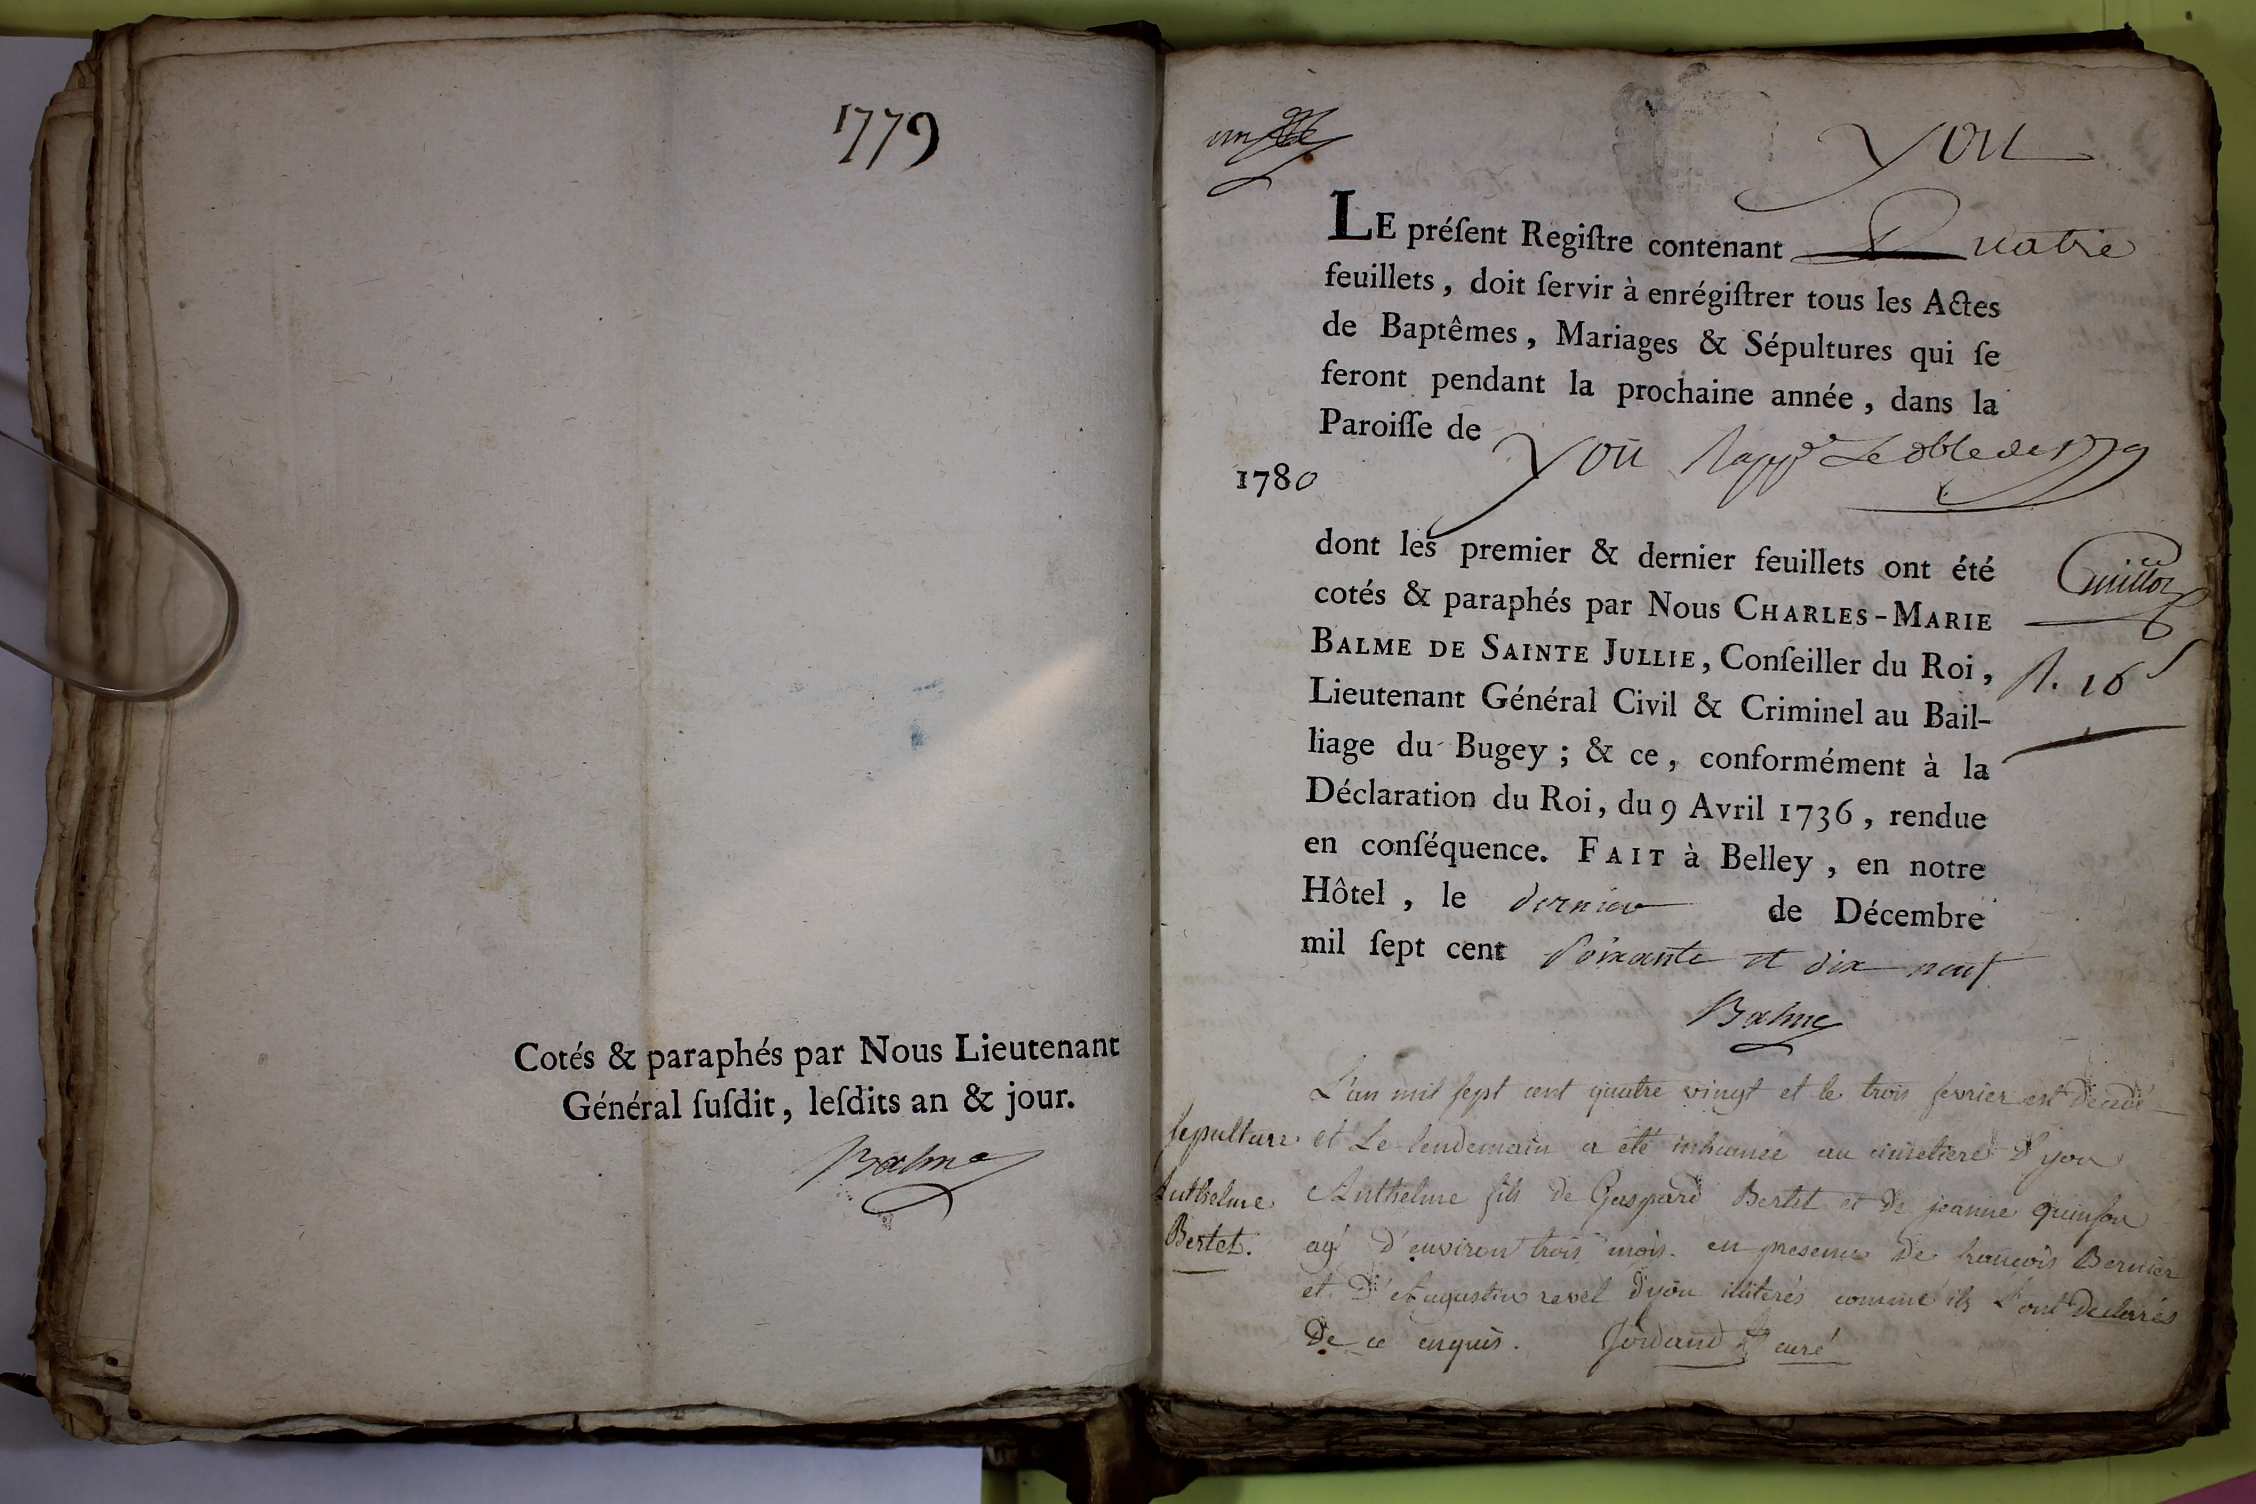 1779
Cotés & paraphés par Nous Lieutenant
Général ſuſdit, leſdits an & jour.
Balme
un
yon
LE préſent Regiſtre contenant Quatre
feuillets, doit ſervir à enrégiſtrer tous les Actes
de Baptêmes, Mariages & Sépultures qui ſe
feront pendant la prochaine année, dans la
Paroiſſe de yon Rapp. Le dble de 1779
1780
dont les premier & dernier feuillets ont été
cotés & paraphés par Nous CHARLES-MARIE
BALME DE SAINTE JULLIE, Conſeiller du Roi,
Lieutenant Général Civil & Criminel au Bail-
liage du Bugey ; & ce, conformément à la
Déclaration du Roi, du 9 Avril 1736, rendue
en conſéquence. FAIT à Belley, en notre
Hôtel, le dernier de Décembre
mil ſept cent Soixante et dix neuf
Balme
Cuillor
R. 16 s
L'an mil sept cent quatre vingt et le trois fevrier est decedé
et Le lendemain a été inhumée au cimetiere d'yon
Anthelme fils de Gaspard Bertet et de jeanne quinson
agé d'environ trois mois. en presence de francois Bernier
et d'Augustin revel d'yon illiterés comme ils L'ont declarés
De ce enquis. Jordand curé
sepulture
Anthelme
Bertet.